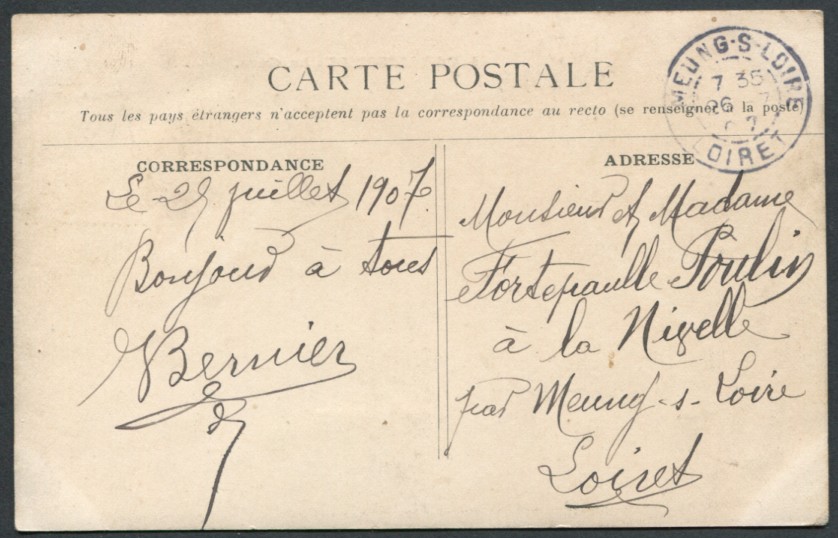 CARTE POSTALE
Tous les pays étrangers n'acceptent pas la correspondance au recto (se renseigner à la poste)
MEUNG-S-LOIRE
7 35
26 7
07
LOIRET
CORRESPONDANCE
Le 25 juillet 1907
Bonjour à tous
Bernier
ADRESSE
Monsieur et Madame
Fortepaulle Poulin
à la Nivelle
par Meung-s-Loire
Loiret